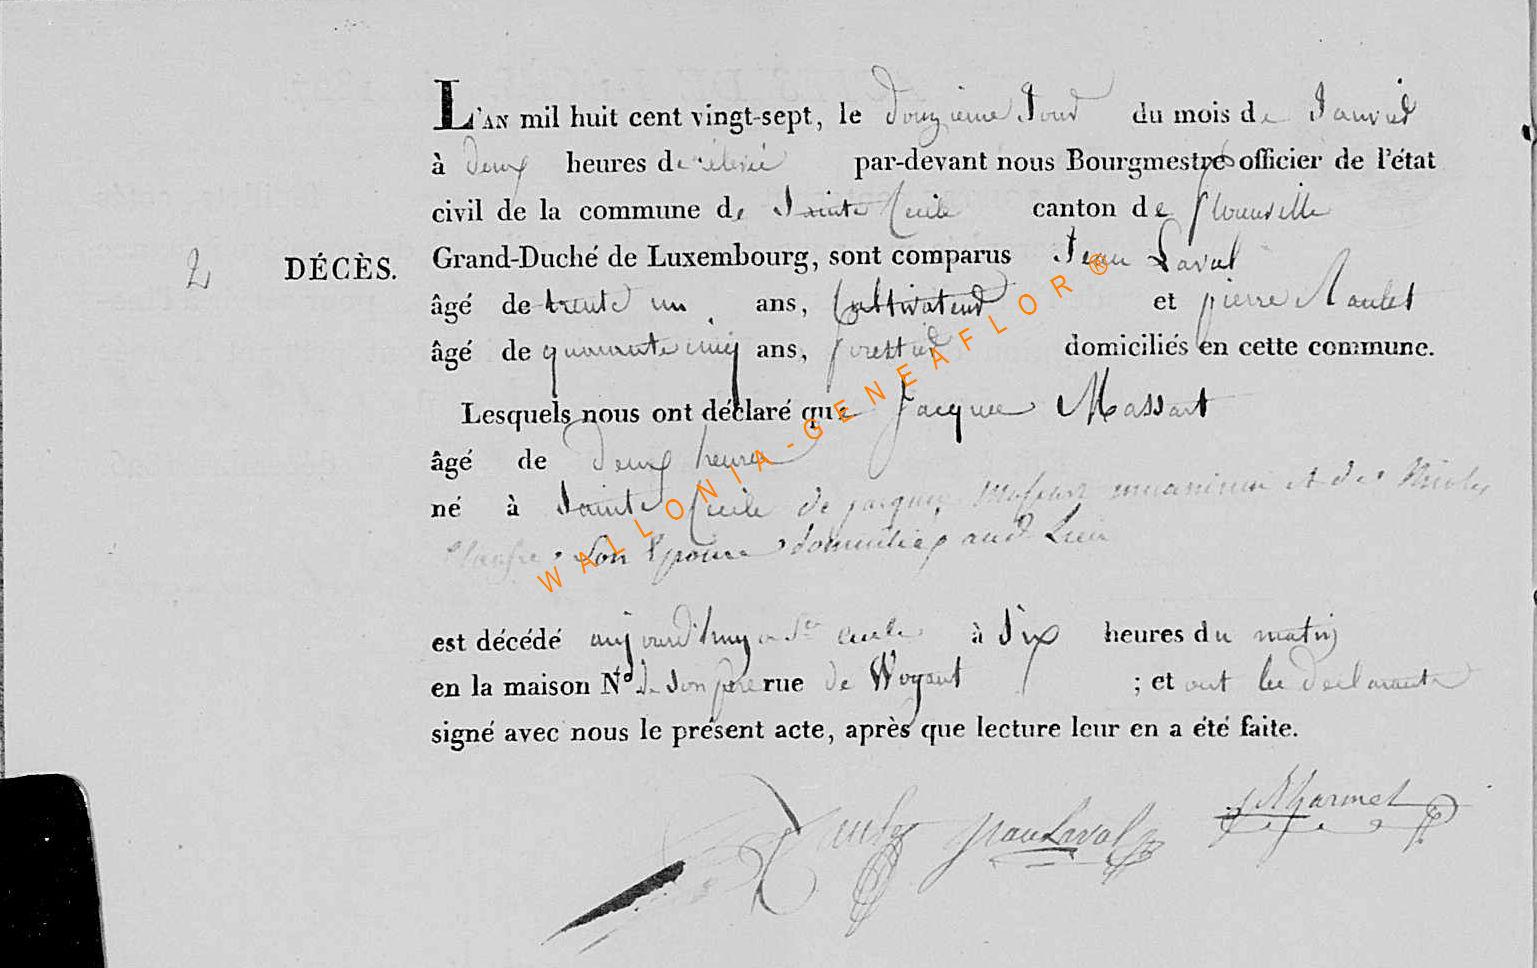 L'AN mil huit cent vingt-sept, le douzieme Jour du mois de Janvier
à deux heures de relevée par-devant nous Bourgmestre officier de l'état
civil de la commune de Sainte Cecile canton de florenville
2 DÉCÈS. Grand-Duché de Luxembourg, sont comparus Jean Laval
âgé de trente un ans, Cultivateur et pierre
âgé de quarante cinq ans, forettier domiciliés en cette commune.
Lesquels nous ont déclaré que Jacques Massart
âgé de deux heures
né à Sainte Cecile de jacques Massart et de
son Epouse domiciliés aud. Lieu
est décédé aujourd'huy a Ste cecile à Six heures du matin
en la maison No de son pere rue de ; et ont les declarants
signé avec nous le présent acte, après que lecture leur en a été faite.
Jean Laval
WALLONIA-GENEAFLOR®